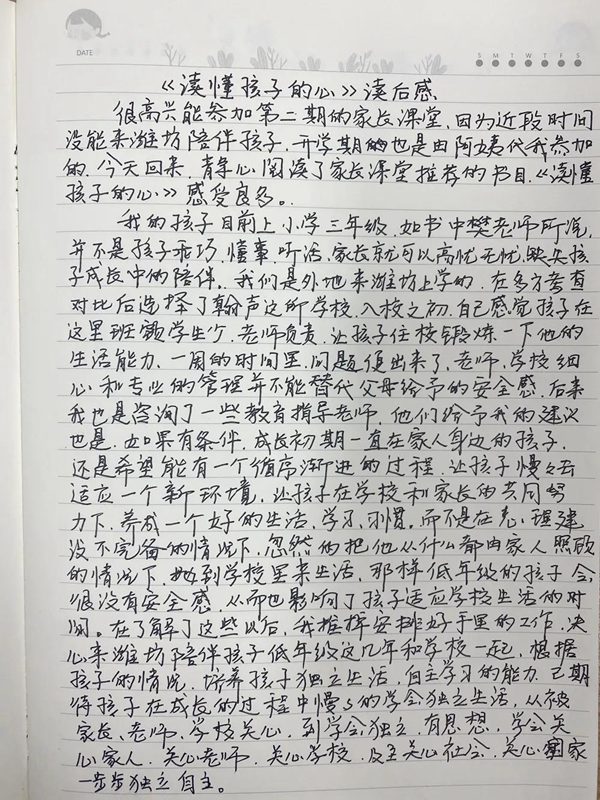 DATE
S M T W T F S
《读懂孩子的心》读后感
很高兴能参加第二期的家长课堂,因为近段时间
没能来潍坊陪伴孩子,开学期的也是由阿姨代我参加
的,今天回来,静心阅读了家长课堂推荐的书目,《读懂
孩子的心》感受良多。
我的孩子目前上小学三年级,如书中樊老师所说,
并不是孩子乖巧,懂事,听话,家长就可以高忱无忧,缺失孩
子成长中的陪伴。我们是外地来潍坊上学的,在多方考查
对比后选择了翰声这所学校,入校之初,自己感觉孩子在
这里班额学生少,老师负责,让孩子住校锻炼一下他的
生活能力,一周的时间里,问题便出来了,老师,学校细
心和专业的管理并不能替代父母给予的安全感,后来
我也是咨询了一些教育指导老师,他们给予我的建议
也是,如果有条件,成长初期一直在家人身边的孩子,
还是希望能有一个循序渐进的过程,让孩子慢慢去
适应一个新环境,让孩子在学校和家长的共同努
力下,养成一个好的生活,学习,习惯。而不是在心理建
设不完备的情况下,忽然的把他从什么都由家人照顾
的情况下,搬到学校里来生活,那样低年级的孩子会
很没有安全感,从而也影响了孩子适应学校生活的时
间。在了解了这些以后,我推掉安排好手里的工作,决
心来潍坊陪伴孩子低年级这几年和学校一起,根据
孩子的情况,培养孩子独立生活,自主学习的能力,已期
待孩子在成长的过程中慢慢的学会独立生活,从被
家长、老师、学校关心,到学会独立,有思想,学会关
心家人,关心老师,关心学校,及至关心社会,关心国家
一步步独立自主。